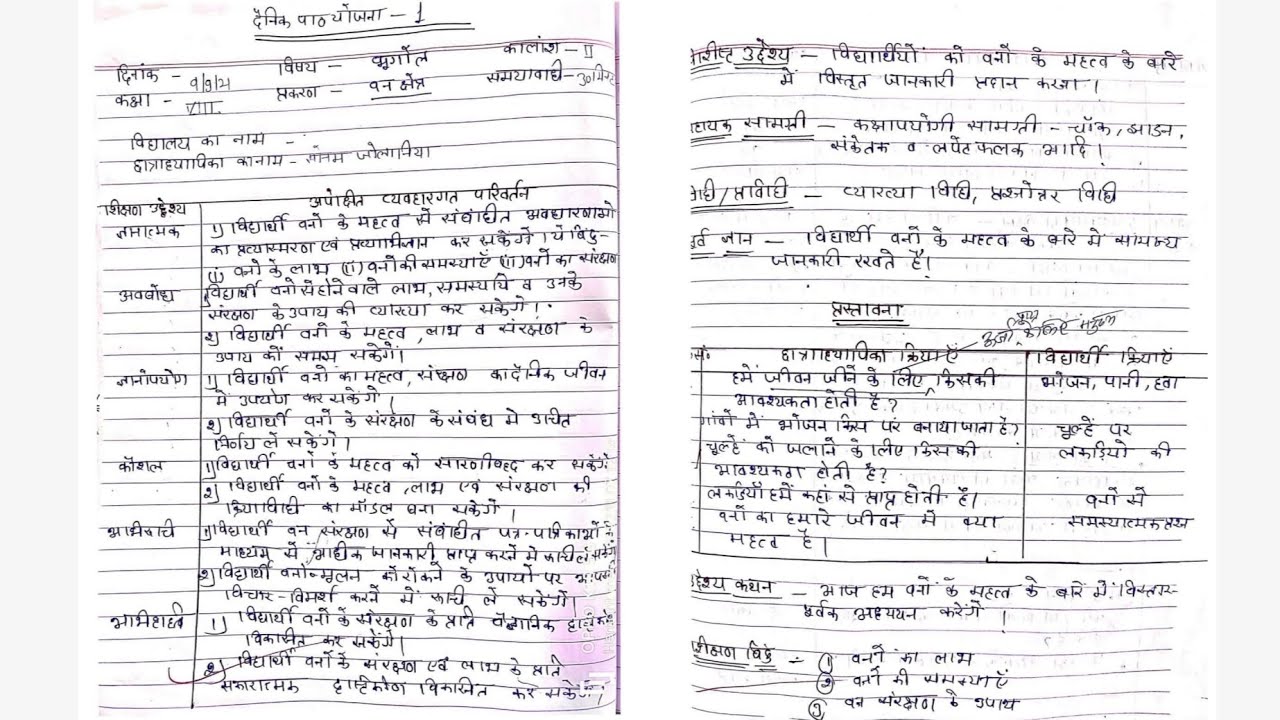 दैनिक पाठ योजना - 1
दिनांक - 9/9/21 विषय - भूगोल कालांश - II
कक्षा - VIII प्रकरण - वन क्षेत्र समयावधि - 30 मिनट
विद्यालय का नाम -
छात्राध्यापिका का नाम -
शिक्षण उद्देश्य अपेक्षित व्यवहारगत परिवर्तन
ज्ञानात्मक 1) विद्यार्थी वनों के महत्व से संबंधित अवधारणाओं
का प्रत्यास्मरण एवं प्रत्याभिज्ञान कर सकेंगे। ये बिंदु -
(i) वनों के लाभ (ii) वनों की समस्याएँ (iii) वनों का संरक्षण
अवबोध विद्यार्थी वनों से होने वाले लाभ, समस्याये व उनके
संरक्षण के उपाय की व्याख्या कर सकेंगे।
2) विद्यार्थी वनों के महत्व, लाभ व संरक्षण के
उपाय को समझ सकेंगे।
ज्ञानोपयोग 1) विद्यार्थी वनों का महत्व, संरक्षण का दैनिक जीवन
में उपयोग कर सकेंगे।
2) विद्यार्थी वनों के संरक्षण के संबंध मे उचित
निर्णय लें सकेंगे।
कौशल 1) विद्यार्थी वनों के महत्व को सारणीबद्ध कर सकेंगे
2) विद्यार्थी वनों के महत्व, लाभ एवं संरक्षण की
क्रियाविधी का मॉडल बना सकेंगे।
अभिरूची 1) विद्यार्थी वन संरक्षण से संबंधित पत्र-पत्रिकाओं के
माध्यम से अधिक जानकारी प्राप्त करने मे रूची ले सकेंगे
2) विद्यार्थी वनोन्मूलन को रोकने के उपायों पर
विचार-विमर्श करने में रूचि लें सकेंगे।
अभिवृत्ति 1) विद्यार्थी वनों के संरक्षण के प्रति वैज्ञानिक दृष्टिकोण
विकसित कर सकेंगे।
2) विद्यार्थी वनों के संरक्षण एवं लाभ के प्रति
सकारात्मक दृष्टिकोण विकसित कर सकेंगे।
उद्देश्य - विद्यार्थियों को वनों के महत्व के बारे
में विस्तृत जानकारी प्रदान करना।
सामग्री - कक्षापयोगी सामग्री - चॉक, झाडन,
संकेतक व लपेट फलक आदि।
प्राविधी - व्याख्या विधि, प्रश्नोत्तर विधि
ज्ञान - विद्यार्थी वनों के महत्व के बारे मे सामान्य
जानकारी रखते है।
प्रस्तावना
छात्राध्यापिका क्रियाएँ विद्यार्थी क्रियाएँ
हमें जीवन जीने के लिए किसकी भोजन, पानी, हवा
आवश्यकता होती है?
गांवों में भोजन किस पर बनाया जाता है? चूल्हें पर
चूल्हें को जलाने के लिए किसकी लकड़ियो की
आवश्यकता होती है?
लकड़ियाँ हमें कहां से प्राप्त होती है। वनों से
वनों का हमारे जीवन में क्या समस्यात्मक प्रश्न
महत्व है।
उद्देश्य कथन - आज हम वनों के महत्व के बारे में विस्तार-
पूर्वक अध्ययन करेंगे।
शिक्षण बिंदु - 1 वनों का लाभ
2 वनों की समस्याएँ
3 वन संरक्षण के उपाय